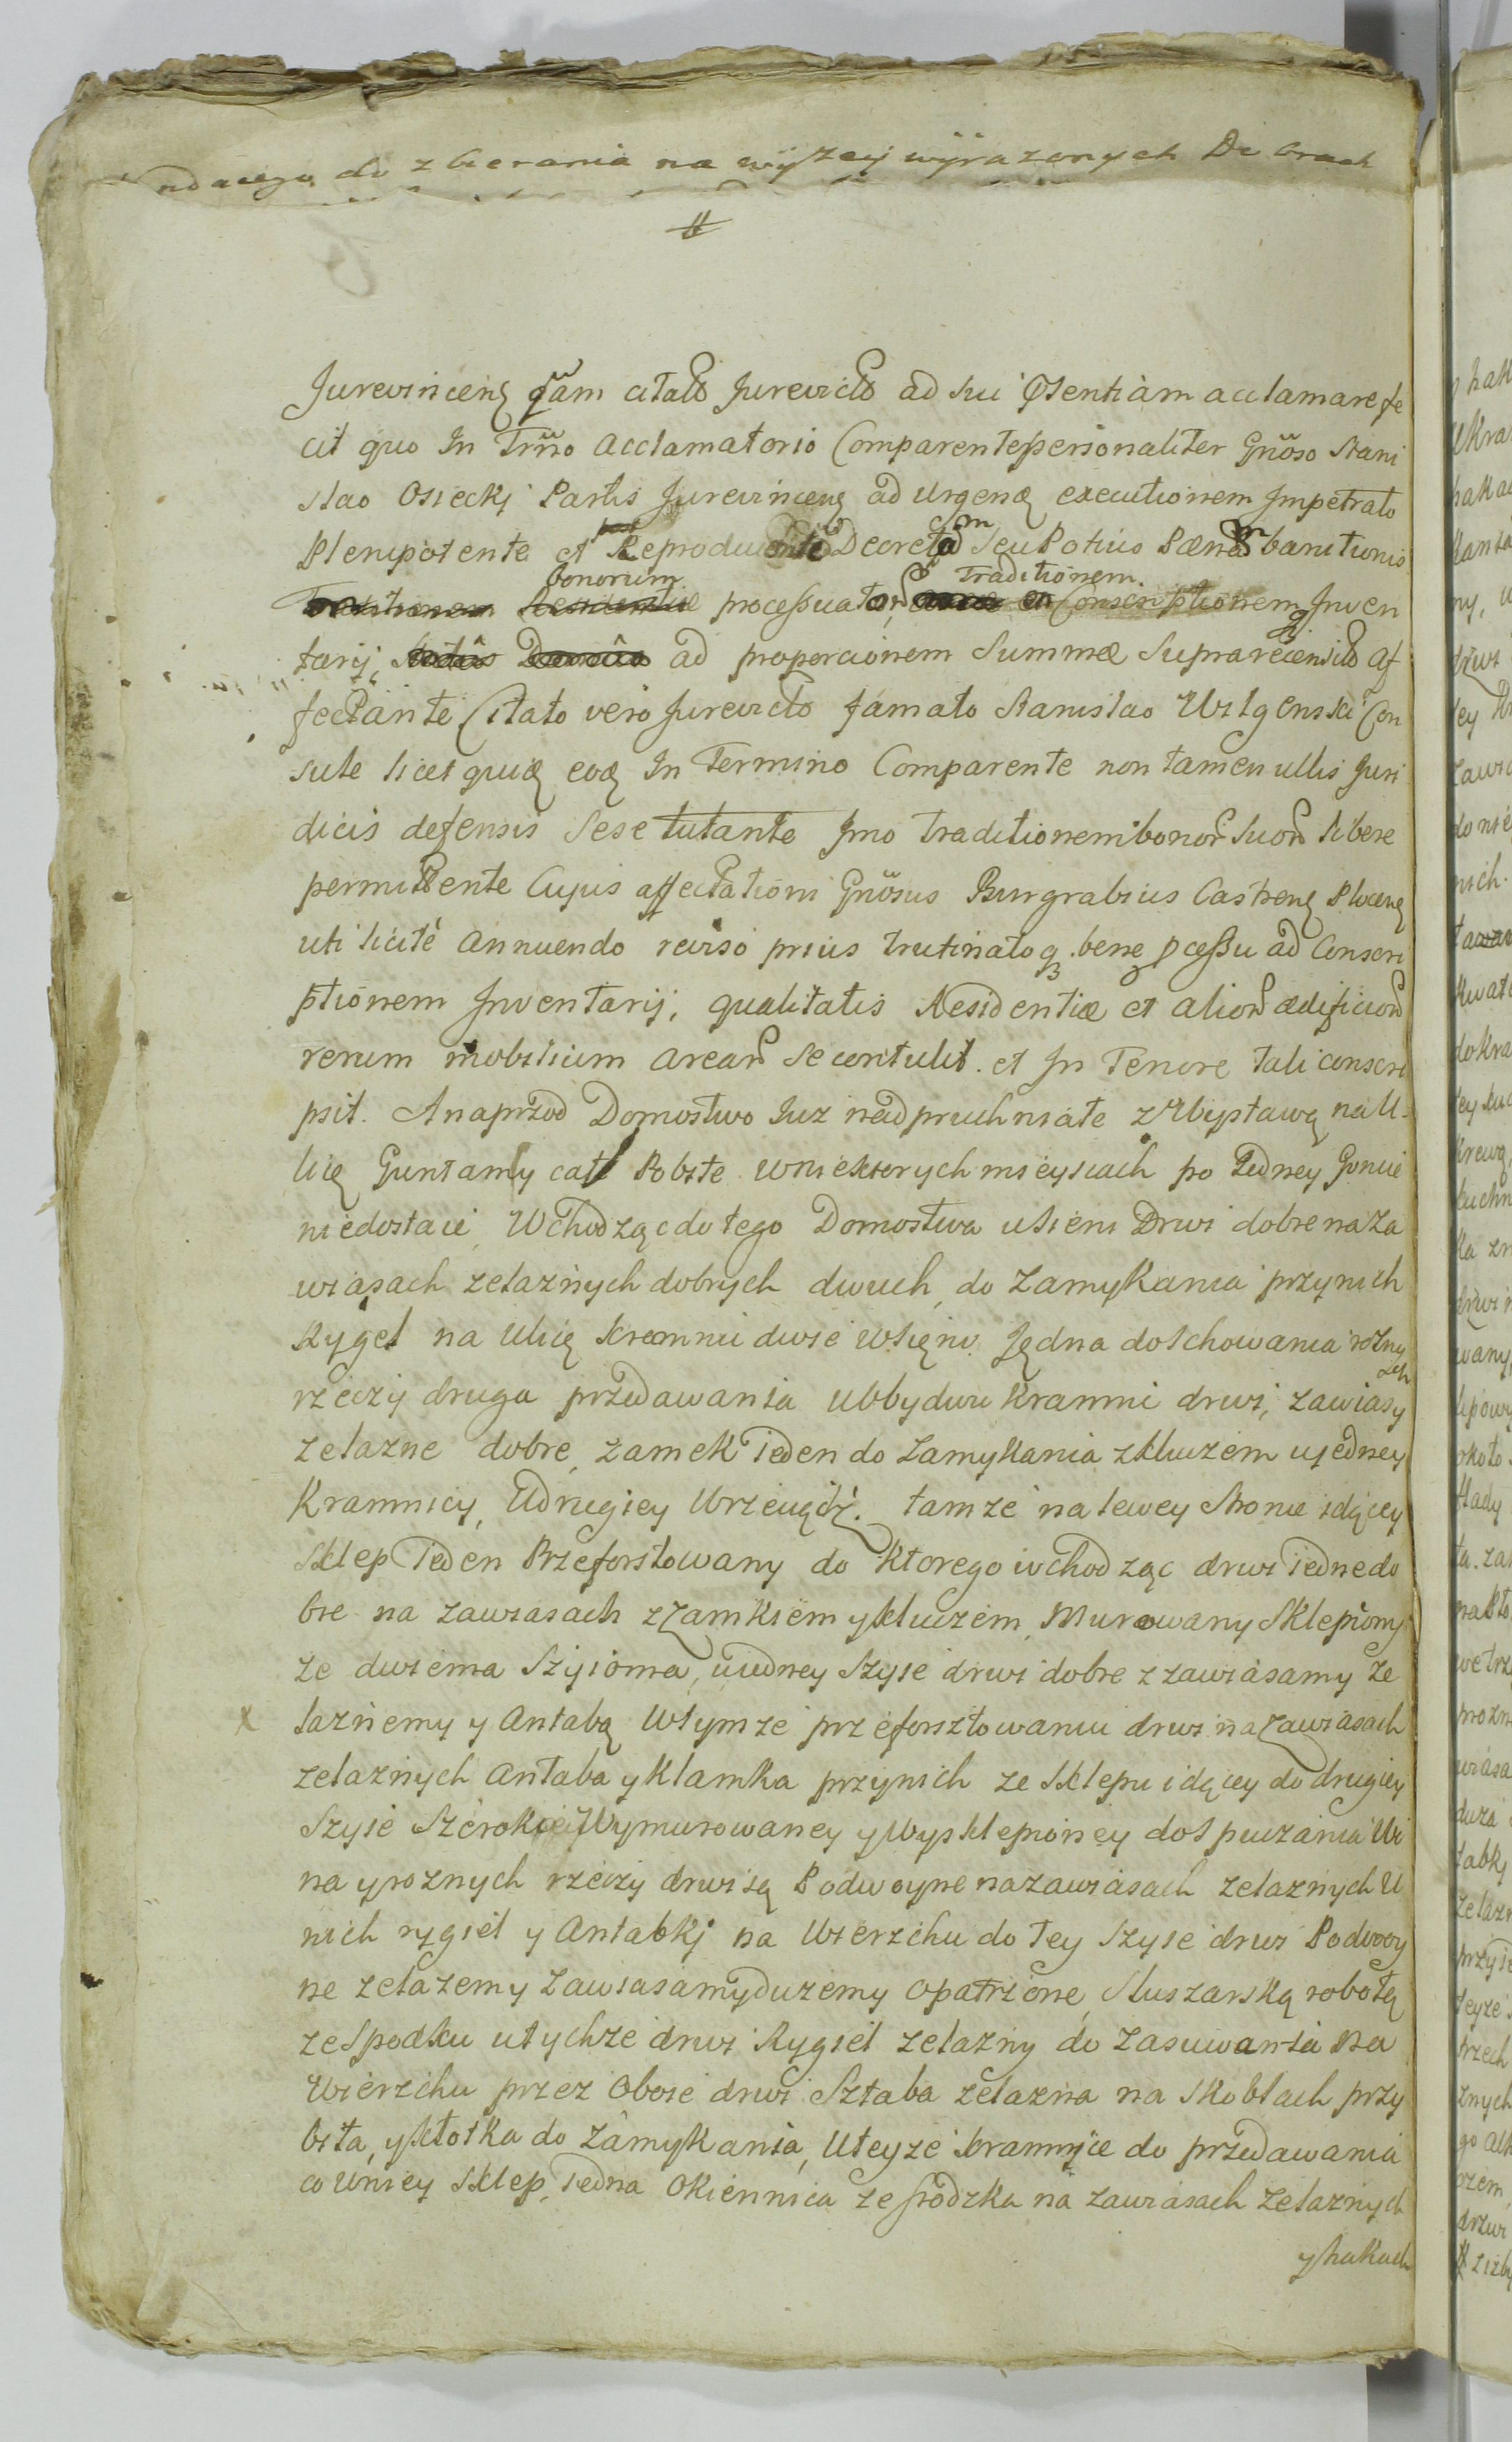 ndacego do zbierania na wyższeij wÿrazonych Dobrach
Jurevinceñ qũam citato Jurevicto ad sui pñsentiam acclamare fe
cit quo In Trño acclamatorio Comparente personaliter Gñoso Stani
slao Osieckj Partis Jurevinceñ ad Urgenđ executionem Jmpetrato
Plenipotente et post Reproductũ Decretum seu Potius Pænam banitionis
Traditionem Residentiæ bonorum processuator, Traditionem et Conscriptionemq Jnven
tarij, ad proporcionem Summæ Suprarecensitæ Af
fectante Citato vero Jurevicto famato Stanislao Con
sule licet In Termino Comparente non tamen ullis Juri
dicis defensis sese tutante Jmo traditionem bonor suor libere
permittente Cujus affectationi Gñosus Burgrabius Castreñ Ploceñ
uti licite annuendo reviso prius trutinatoq bene pcessu ad Conscri
ptionem Jnventarij, qualitatis Residentiæ et alior ædificior
rerum mobilium arear se contulit. et Jn Tenore tali conscri
psit. A naprzod Domostwo Juz nadpruchniałe z Wystawą na U-
licę Guntamy cały Pobite w niektorych mieyscach po Jedney Goncie
niedostaie, Wchodząc do tego Domostwa u sieni Drwi dobre na za
wiasach zelaznych dobrych dwuch, do zamykania przynich
Rygel na Ulicę kramnici dwie w sięni. Jędna do schowania rożnych
rzeczy druga przedawania u bbydwu kramnic drwi, zawiasy
zelazne dobre, zamek ieden do zamykania z kluczem u jedney
Kramnicy, U drugiey Wrzeciądz. tamze na lewey stronie idącey
Sklep ieden Przeforstowany do ktorego wchodząc drwi iedne do
bre na zawiasach z zamkiem y kluczem, Murowany Sklepiony
ze dwiema szyioma, u iedney szyie drwi dobre z zawiasamy że
laznemy y Antabą w tymze przeforsztowaniu drwi na zawiasach
zelaznych antaba y klamka przynich ze sklepu idącey do drugiey
Szyie szerokiey Wymurowaney y Wysklepioney do spuczania Wi
na y roznych rzeczy drwi są Podwoyne na zawiasach zelaznych U
nich rygiel y Antabkj na Wierzchu do tey szyie drwi Podwoy
ne zelazemy zawiasamy dużemy opatrzone, Slusarską robotą
ze Spodku u tychze drwi Rygiel zelazny do zasuwania na
Wierzchu przez oboie drwi Sztaba zelazna na skoblach przy
bita, y kłotka do zamykania, U teyze kramnice do przedawania
co U niey Sklep, iedna Okiennica ze srodzka na zawiasach zelaznych
y hakach